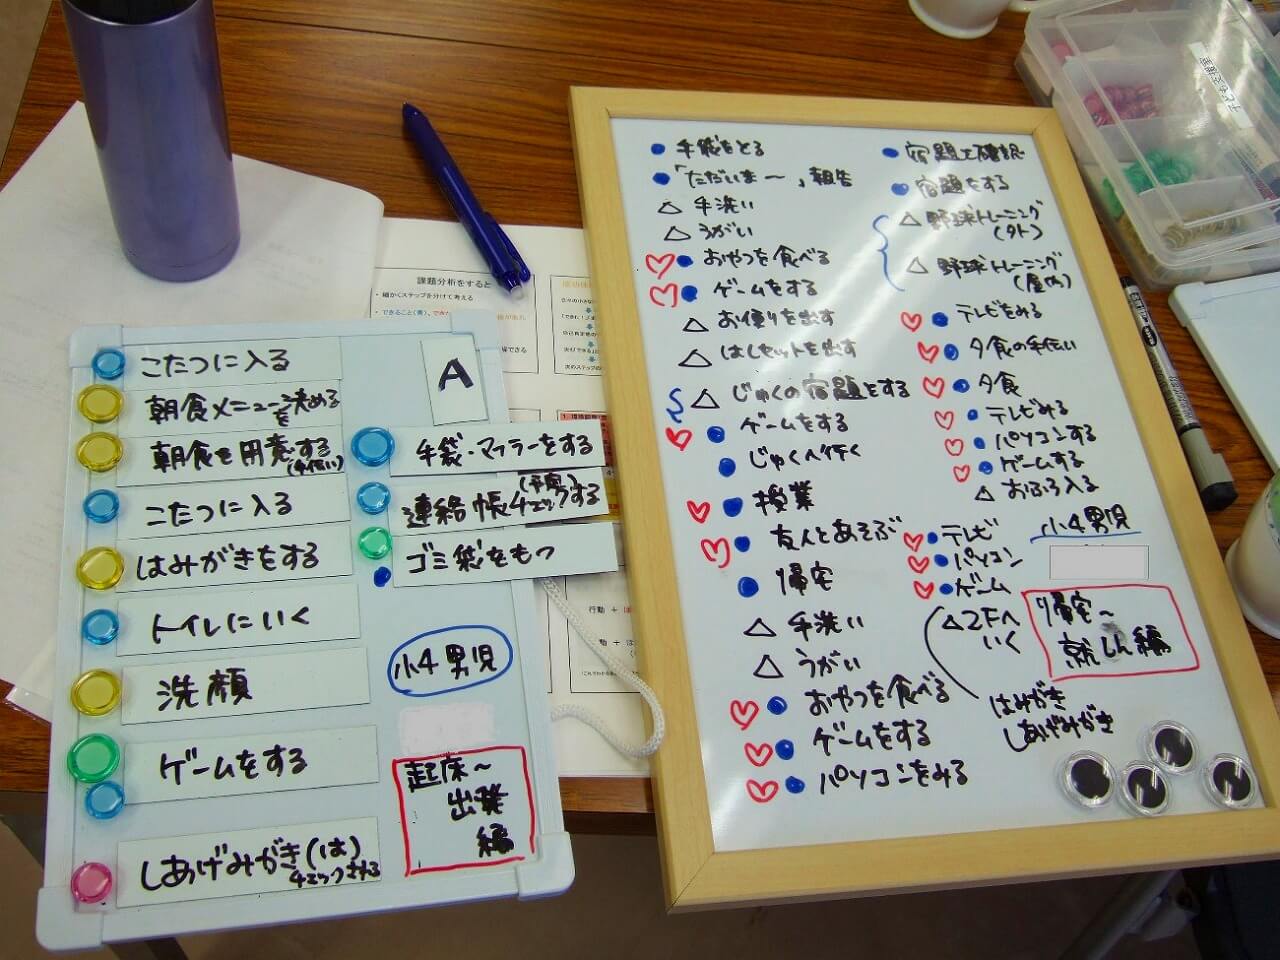 こたつに入る
朝食メニューを決める
朝食を用意する
(手伝い)
こたつに入る
はみがきをする
トイレにいく
洗顔
ゲームをする
しあげみがき(は)
チェックされる
A
手袋・マフラーをする
連絡帳チェックする
ゴミ袋をもつ
小4男児
起床～
出発
編
課題分析をすると
・細かくステップを分けて考える
手袋をとる
「ただいま〜」報告
手洗い
うがい
おやつを食べる
ゲームをする
お便りを出す
はしセットを出す
じゅくの宿題をする
ゲームをする
じゅくへ行く
授業
友人とあそぶ
帰宅
手洗い
うがい
おやつを食べる
ゲームをする
パソコンをみる
宿題を確認
宿題をする
野球トレーニング
(外)
野球トレーニング
(屋内)
テレビをみる
夕食の手伝い
夕食
テレビみる
パソコンする
ゲームする
おふろ入る
テレビ
パソコン
ゲーム
2Fへ
いく
はみがき
しあげみがき
小4男児
帰宅～
就しん編